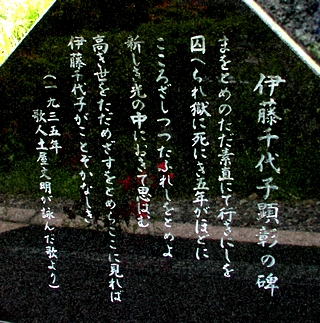 伊藤千代子顕彰の碑
まをとめのただ素直にて行きにしを
囚へられ獄に死にき五年がほどに
こころざしつつたふれしをとめよ
新しき光の中におきて思はむ
高き世をただめざすをとめらここに見れば
伊藤千代子がことぞかなしき
(一九三五年
歌人土屋文明が詠んだ歌より)